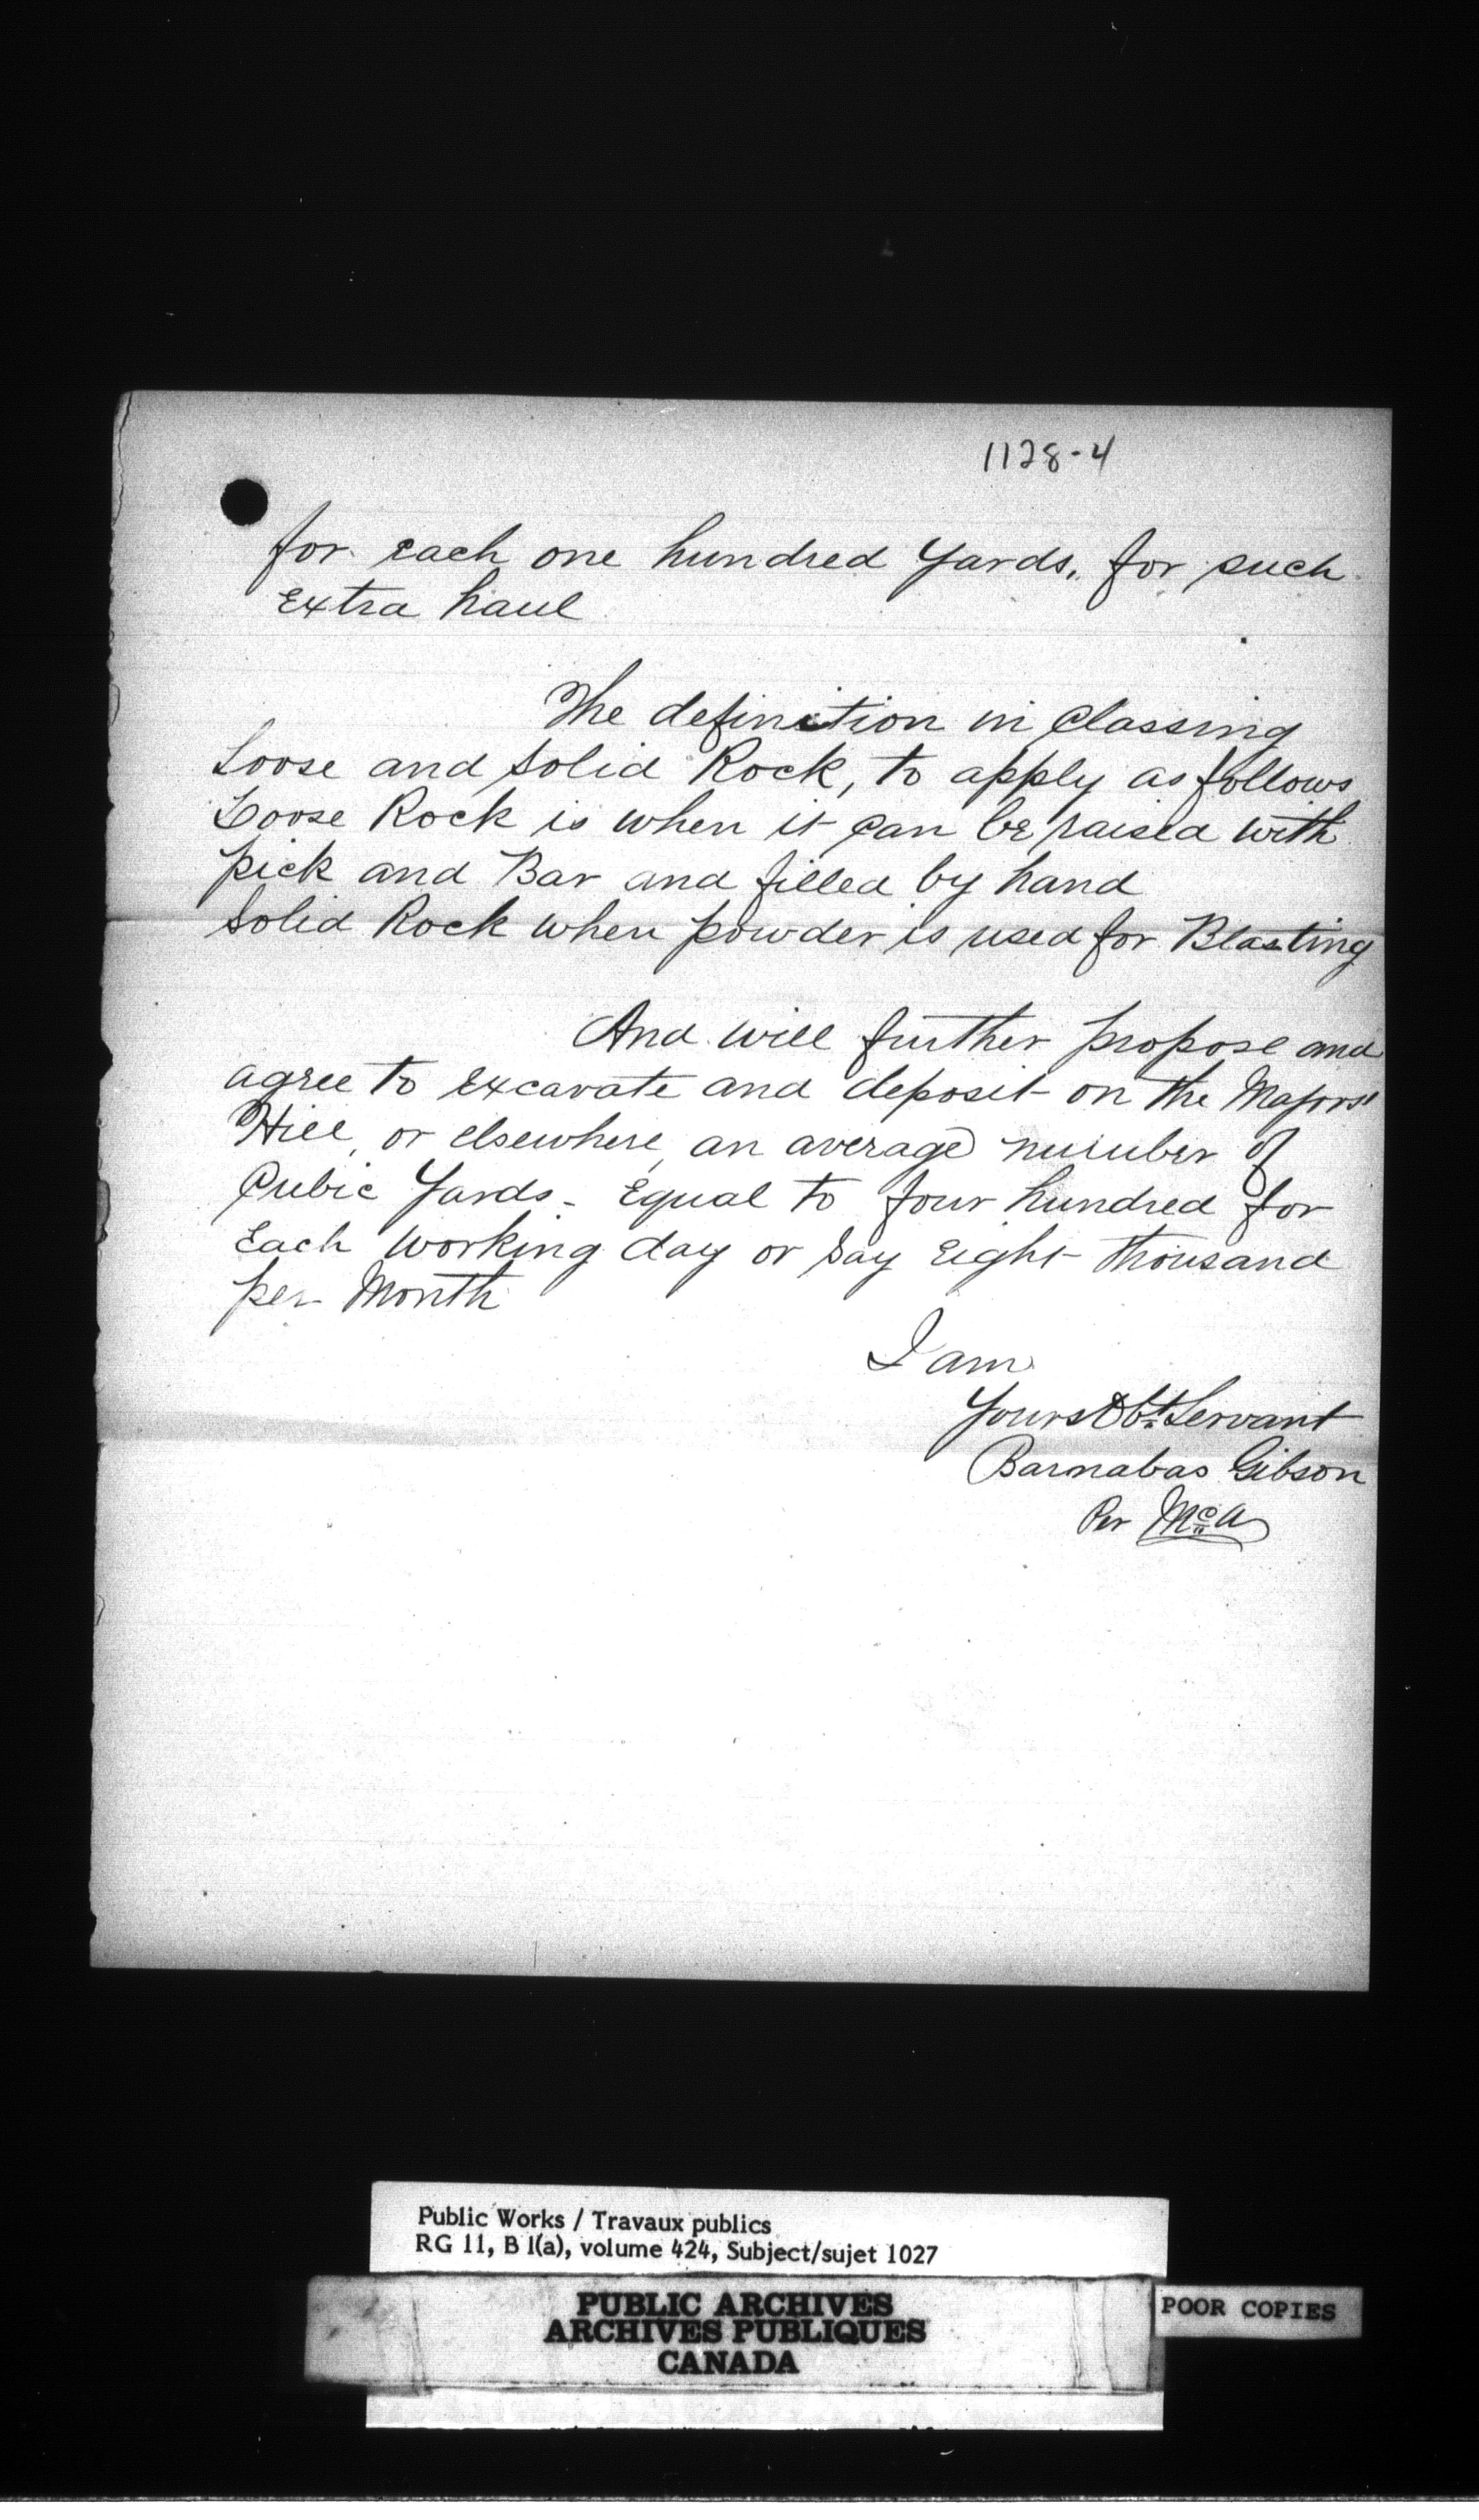 1128-4
for each one hundred Yards, for such
Extra haul
The definition in Classing
Loose and Solid Rock, to apply as follows
Loose Rock is when it can be raised with
pick and Bar and filled by hand
Solid Rock when powder is used for Blasting
And will further propose and
agree to Excavate and deposit on the Majors
Hill, or elsewhere, an average number of
Cubic Yards - Equal to four hundred for
Each working day or Say Eight thousand
per Month
I am
Yours Obt. Servant
Barnabas Gibson
Per McA
Public Works / Travaux publics
RG 11, B 1(a), volume 424, Subject/sujet 1027
PUBLIC ARCHIVES
ARCHIVES PUBLIQUES
CANADA
POOR COPIES